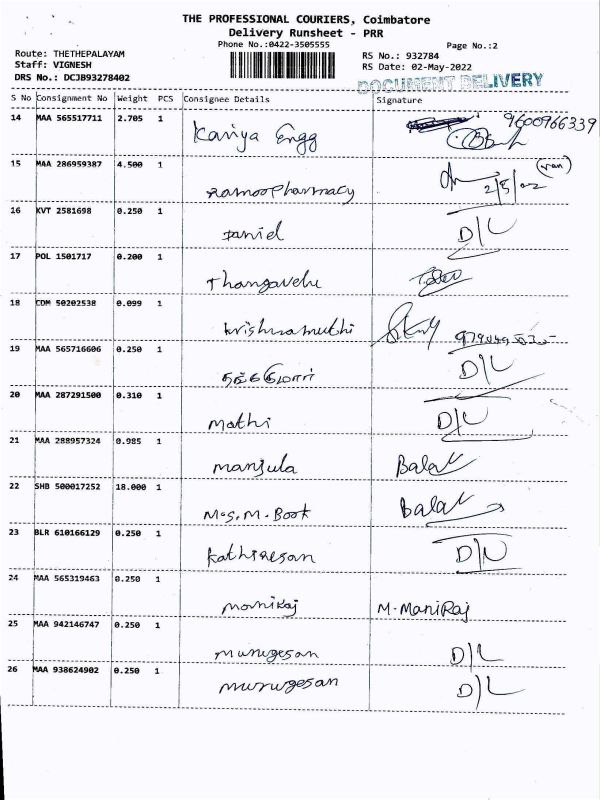 THE PROFESSIONAL COURIERS, Coimbatore
Delivery Runsheet - PRR
Phone No.:0422-3505555
Page No.:2
Route: THETHEPALAYAM
RS No.: 932784
Staff: VIGNESH
RS Date: 02-May-2022
DRS No.: DCJB93278402
DOCUMENT DELIVERY
S No Consignment No Weight PCS Consignee Details Signature
14 MAA 565517711 2.705 1 Kaviya Engg 9600966339
15 MAA 286959387 4.500 1 Ramoo Pharmacy
16 KVT 2581698 0.250 1 Daniel D/L
17 POL 1501717 0.200 1 Thangavelu
18 CDM 50202538 0.099 1 krishnamuthi
19 MAA 565716606 0.250 1 D/L
20 MAA 287291500 0.310 1 Mathi D/L
21 MAA 288957324 0.985 1 manjula Bala
22 SHB 500017252 18.000 1 M.S.M. Book Bala
23 BLR 610166129 0.250 1 Kathiresan D/L
24 MAA 565319463 0.250 1 manikaj M. ManiRaj
25 MAA 942146747 0.250 1 murugesan D/L
26 MAA 938624902 0.250 1 murugesan D/L